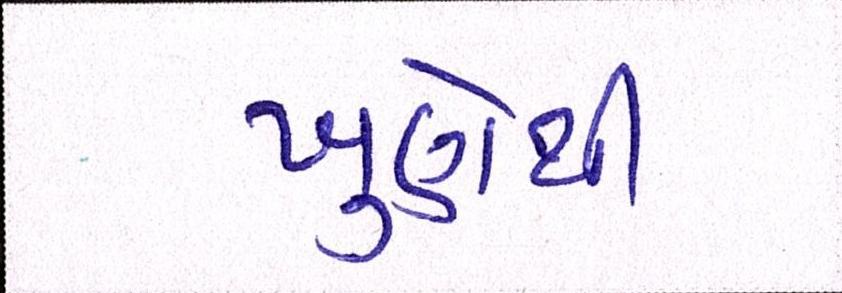 ખુણેથી